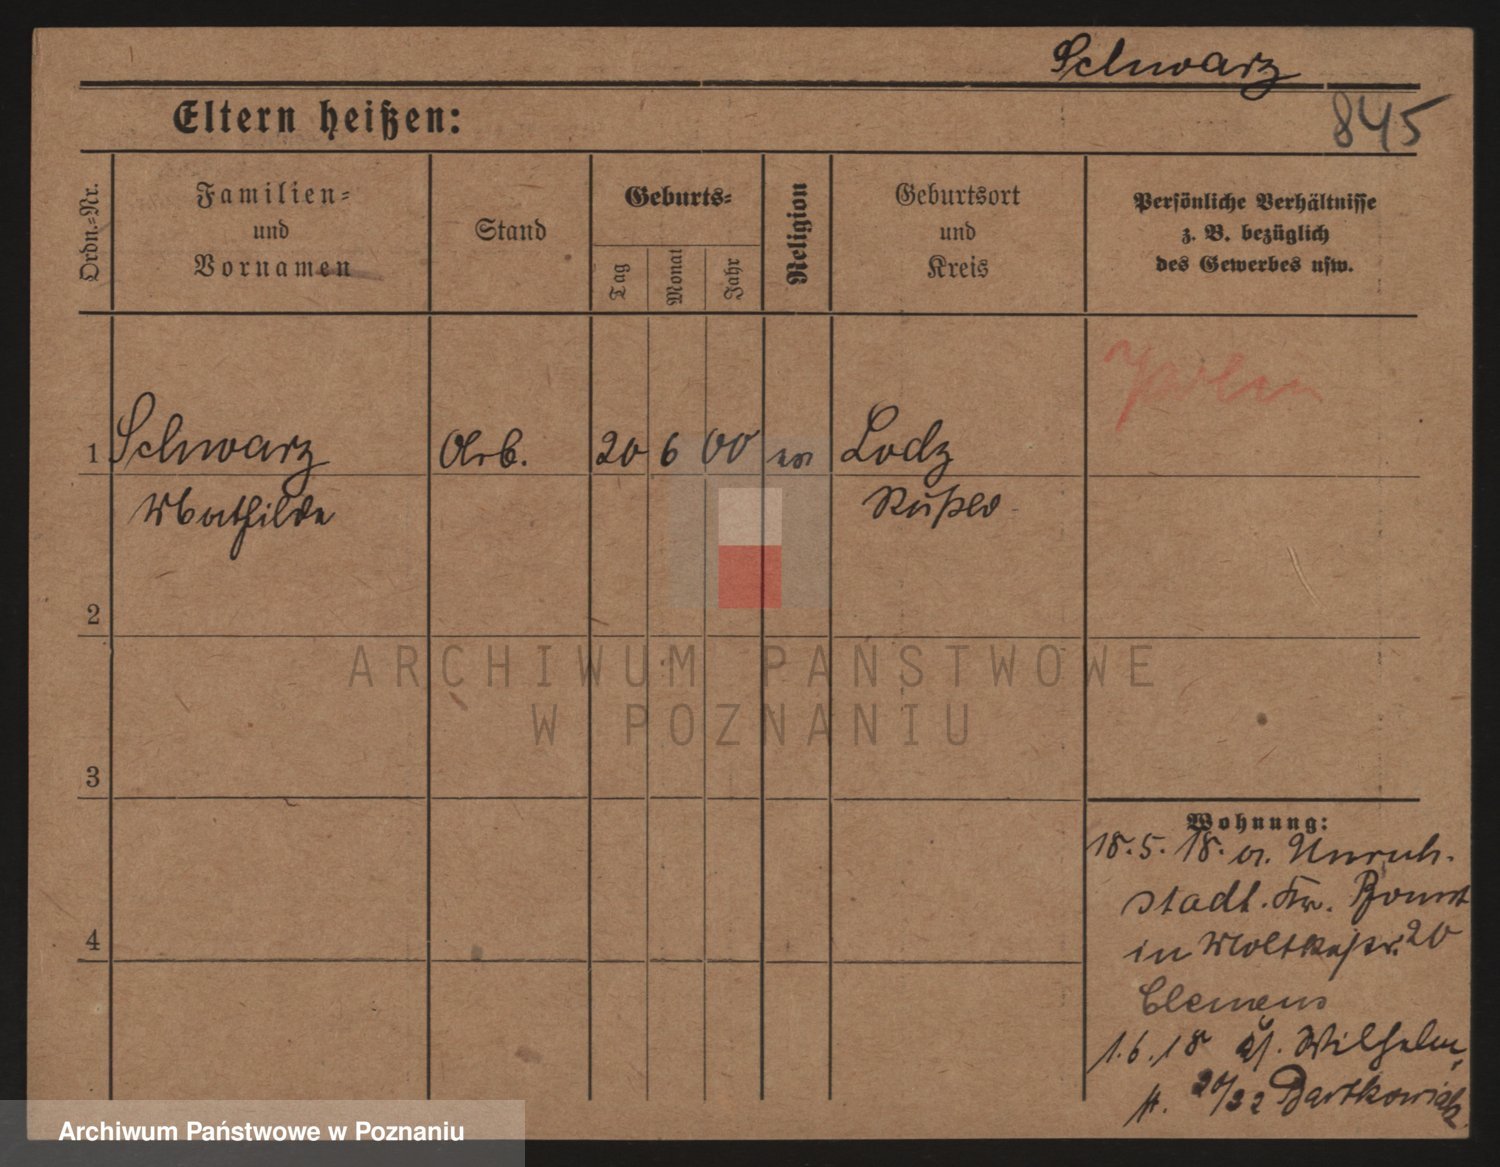 Schwarz
845
Eltern heißen:
Ordn.-Nr.
Familien-
und
Vornamen
Stand
Geburts-
Tag
Monat
Jahr
Religion
Geburtsort
und
Kreis
Persönliche Verhältnisse
z. B. bezüglich
des Gewerbes usw.
1 Schwarz Arb. 20 6 00 ev Lodz
Mathilde Rußld
2
ARCHIWUM PAŃSTWOWE
W POZNANIU
3
Wohnung:
18.5.18. a. Unruh-
stadt. Kr. Bomst
in Moltkestr. 20
4
Clemens
1.6.18 Wilhelm
str. 20/22 Bartkowiak
Archiwum Państwowe w Poznaniu